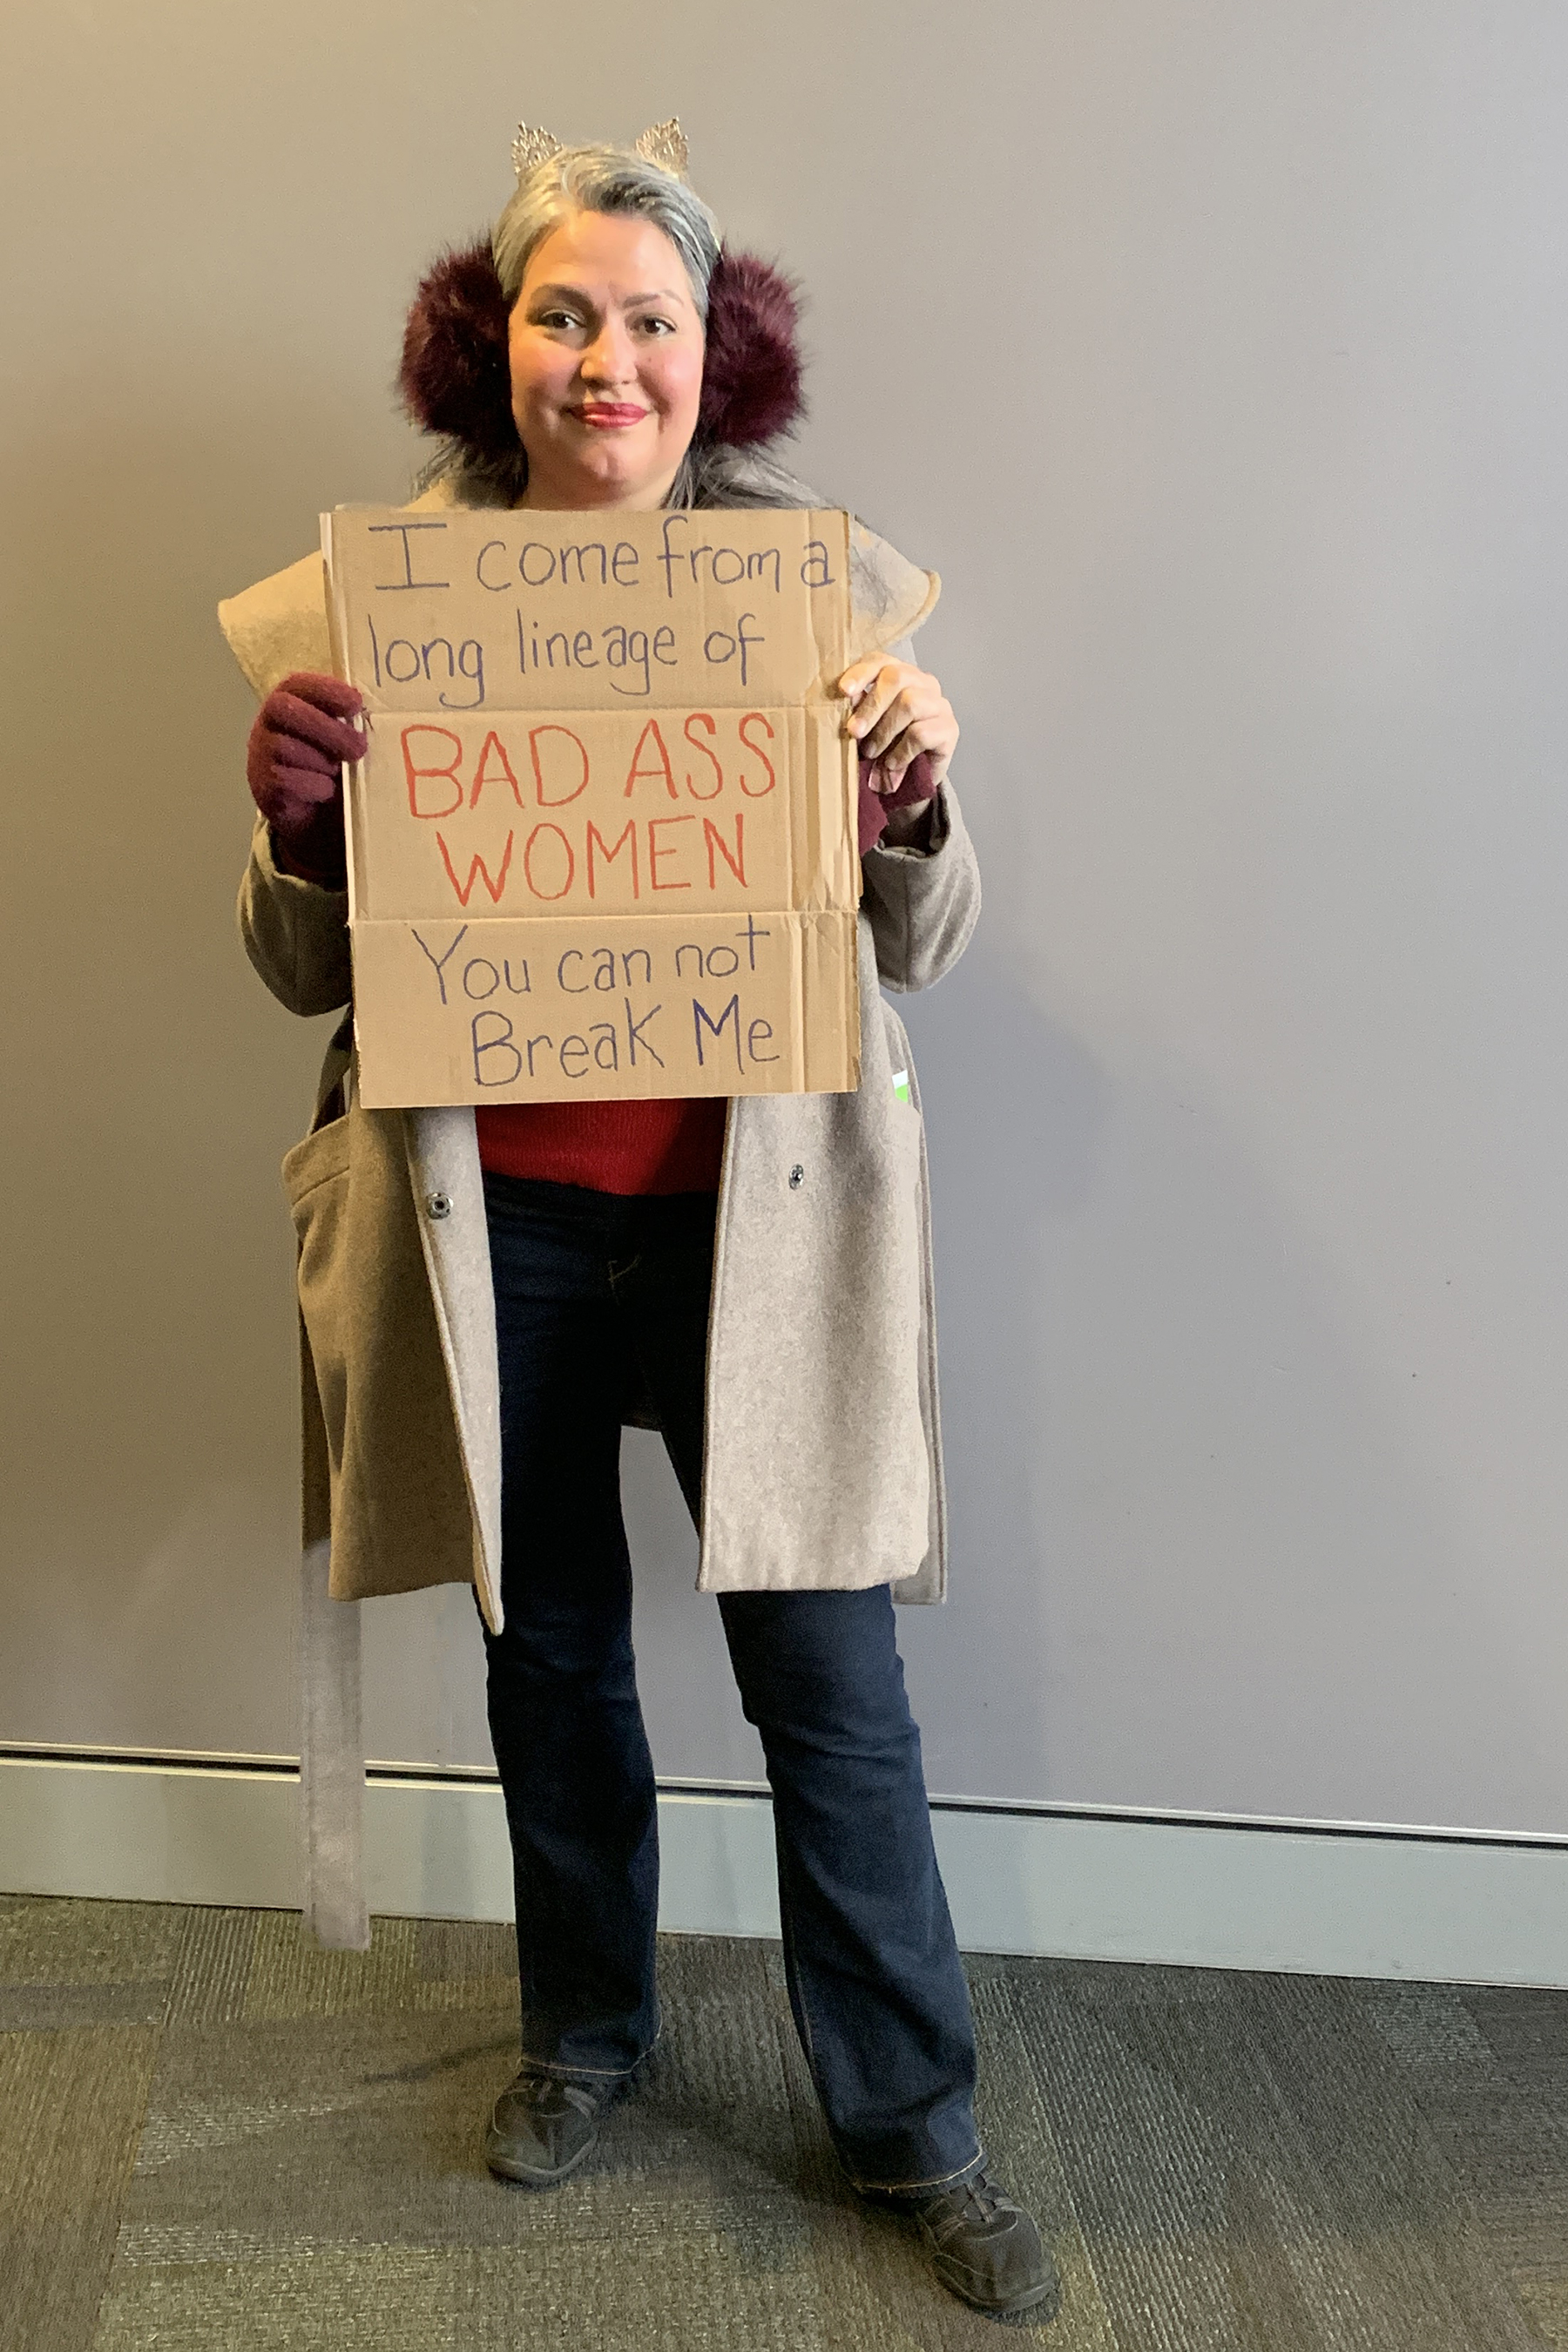 I come from a
long lineage of
BAD ASS
WOMEN
You can not
Break Me